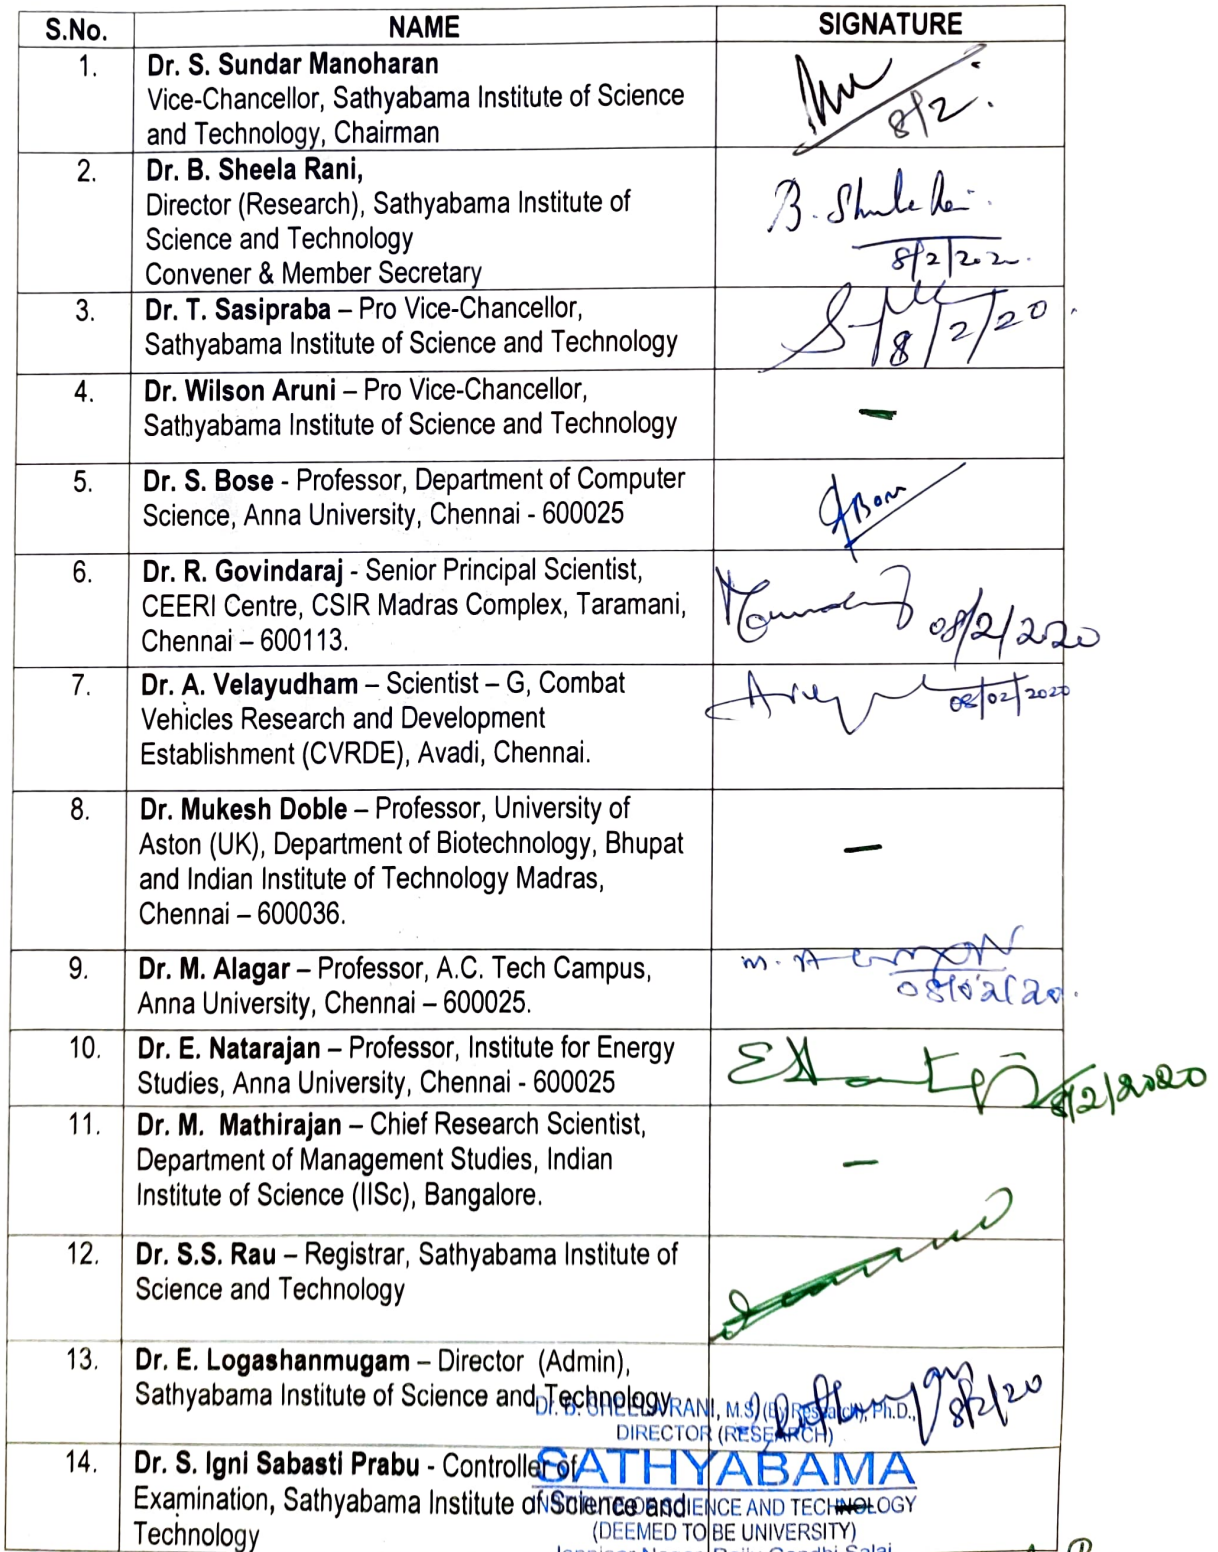 S.No. NAME SIGNATURE
1. Dr. S. Sundar Manoharan
Vice-Chancellor, Sathyabama Institute of Science
and Technology, Chairman
8/2.
2. Dr. B. Sheela Rani,
Director (Research), Sathyabama Institute of
Science and Technology
Convener & Member Secretary
B. 
8/2/2020.
3. Dr. T. Sasipraba – Pro Vice-Chancellor,
Sathyabama Institute of Science and Technology
8/2/20
4. Dr. Wilson Aruni – Pro Vice-Chancellor,
Sathyabama Institute of Science and Technology
–
5. Dr. S. Bose - Professor, Department of Computer
Science, Anna University, Chennai - 600025
6. Dr. R. Govindaraj - Senior Principal Scientist,
CEERI Centre, CSIR Madras Complex, Taramani,
Chennai – 600113.
08/2/2020
7. Dr. A. Velayudham – Scientist – G, Combat
Vehicles Research and Development
Establishment (CVRDE), Avadi, Chennai.
08/02/2020
8. Dr. Mukesh Doble – Professor, University of
Aston (UK), Department of Biotechnology, Bhupat
and Indian Institute of Technology Madras,
Chennai – 600036.
–
9. Dr. M. Alagar – Professor, A.C. Tech Campus,
Anna University, Chennai – 600025.
m.
08/02/20.
10. Dr. E. Natarajan – Professor, Institute for Energy
Studies, Anna University, Chennai - 600025
8/2/2020
11. Dr. M. Mathirajan – Chief Research Scientist,
Department of Management Studies, Indian
Institute of Science (IISc), Bangalore.
–
12. Dr. S.S. Rau – Registrar, Sathyabama Institute of
Science and Technology
13. Dr. E. Logashanmugam – Director (Admin),
Sathyabama Institute of Science and Technology
8/2/20
Dr. B. SHEELA RANI, M.S (By Research), Ph.D.,
DIRECTOR (RESEARCH)
SATHYABAMA
14. Dr. S. Igni Sabasti Prabu - Controller of
Examination, Sathyabama Institute of Science and
Technology
INSTITUTE OF SCIENCE AND TECHNOLOGY
(DEEMED TO BE UNIVERSITY)